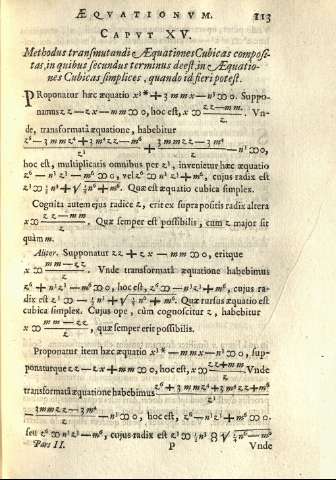 ÆQVATIONVM. 113
CAPVT XV.
Methodus transmutandi Æquationes Cubicas composi-
tas, in quibus secundus terminus deest, in Æquatio-
nes Cubicas simplices, quando id fieri potest.
PRoponatur hæc æquatio x³ * + 3 mmx — n³ ∞ 0. Suppo-
namus zz — zx — mm ∞ 0, hoc est, x ∞ zz — mm / z. Vn-
de, transformatâ æquatione, habebitur
z⁶ — 3 mmz⁴ + 3 m⁴zz — m⁶ / z³ + 3 mmzz — 3 m⁴ / z — n³ ∞ 0,
hoc est, multiplicatis omnibus per z³, invenietur hæc æquatio
z⁶ — n³z³ — m⁶ ∞ 0, vel z⁶ ∞ n³z³ + m⁶, cujus radix est
z³ ∞ ½ n³ + √ ¼ n⁶ + m⁶. Quæ est æquatio cubica simplex.
Cognita autem ejus radice z, erit ex suprapositis radix altera
x ∞ zz — mm / z. Quæ semper est possibilis, cum z major sit
quàm m.
Aliter. Supponatur zz + zx — mm ∞ 0, eritque
x ∞ mm — zz / z. Vnde transformatâ æquatione habebimus
z⁶ + n³z³ — m⁶ ∞ 0, hoc est, z⁶ ∞ — n³z³ + m⁶, cujus ra-
dix est z³ ∞ — ½ n³ + √ ¼ n⁶ + m⁶. Quæ rursus æquatio est
cubica simplex. Cujus ope, cum cognoscitur z, habebitur
x ∞ mm — zz / z, quæ semper erit possibilis.
Proponatur item hæc æquatio x³ * — 3 mmx — n³ ∞ 0, sup-
ponaturque zz — zx + mm ∞ 0, hoc est, x ∞ zz + mm / z. Vnde
transformatâ æquatione habebimus z⁶ + 3 mmz⁴ + 3 m⁴zz + m⁶ / z³
— 3 mmzz — 3 m⁴ / z — n³ ∞ 0, hoc est, z⁶ — n³z³ + m⁶ ∞ 0.
seu z⁶ ∞ n³z³ — m⁶, cujus radix est z³ ∞ ½ n³ √ ¼ n⁶ — m⁶
Pars II. P Vnde